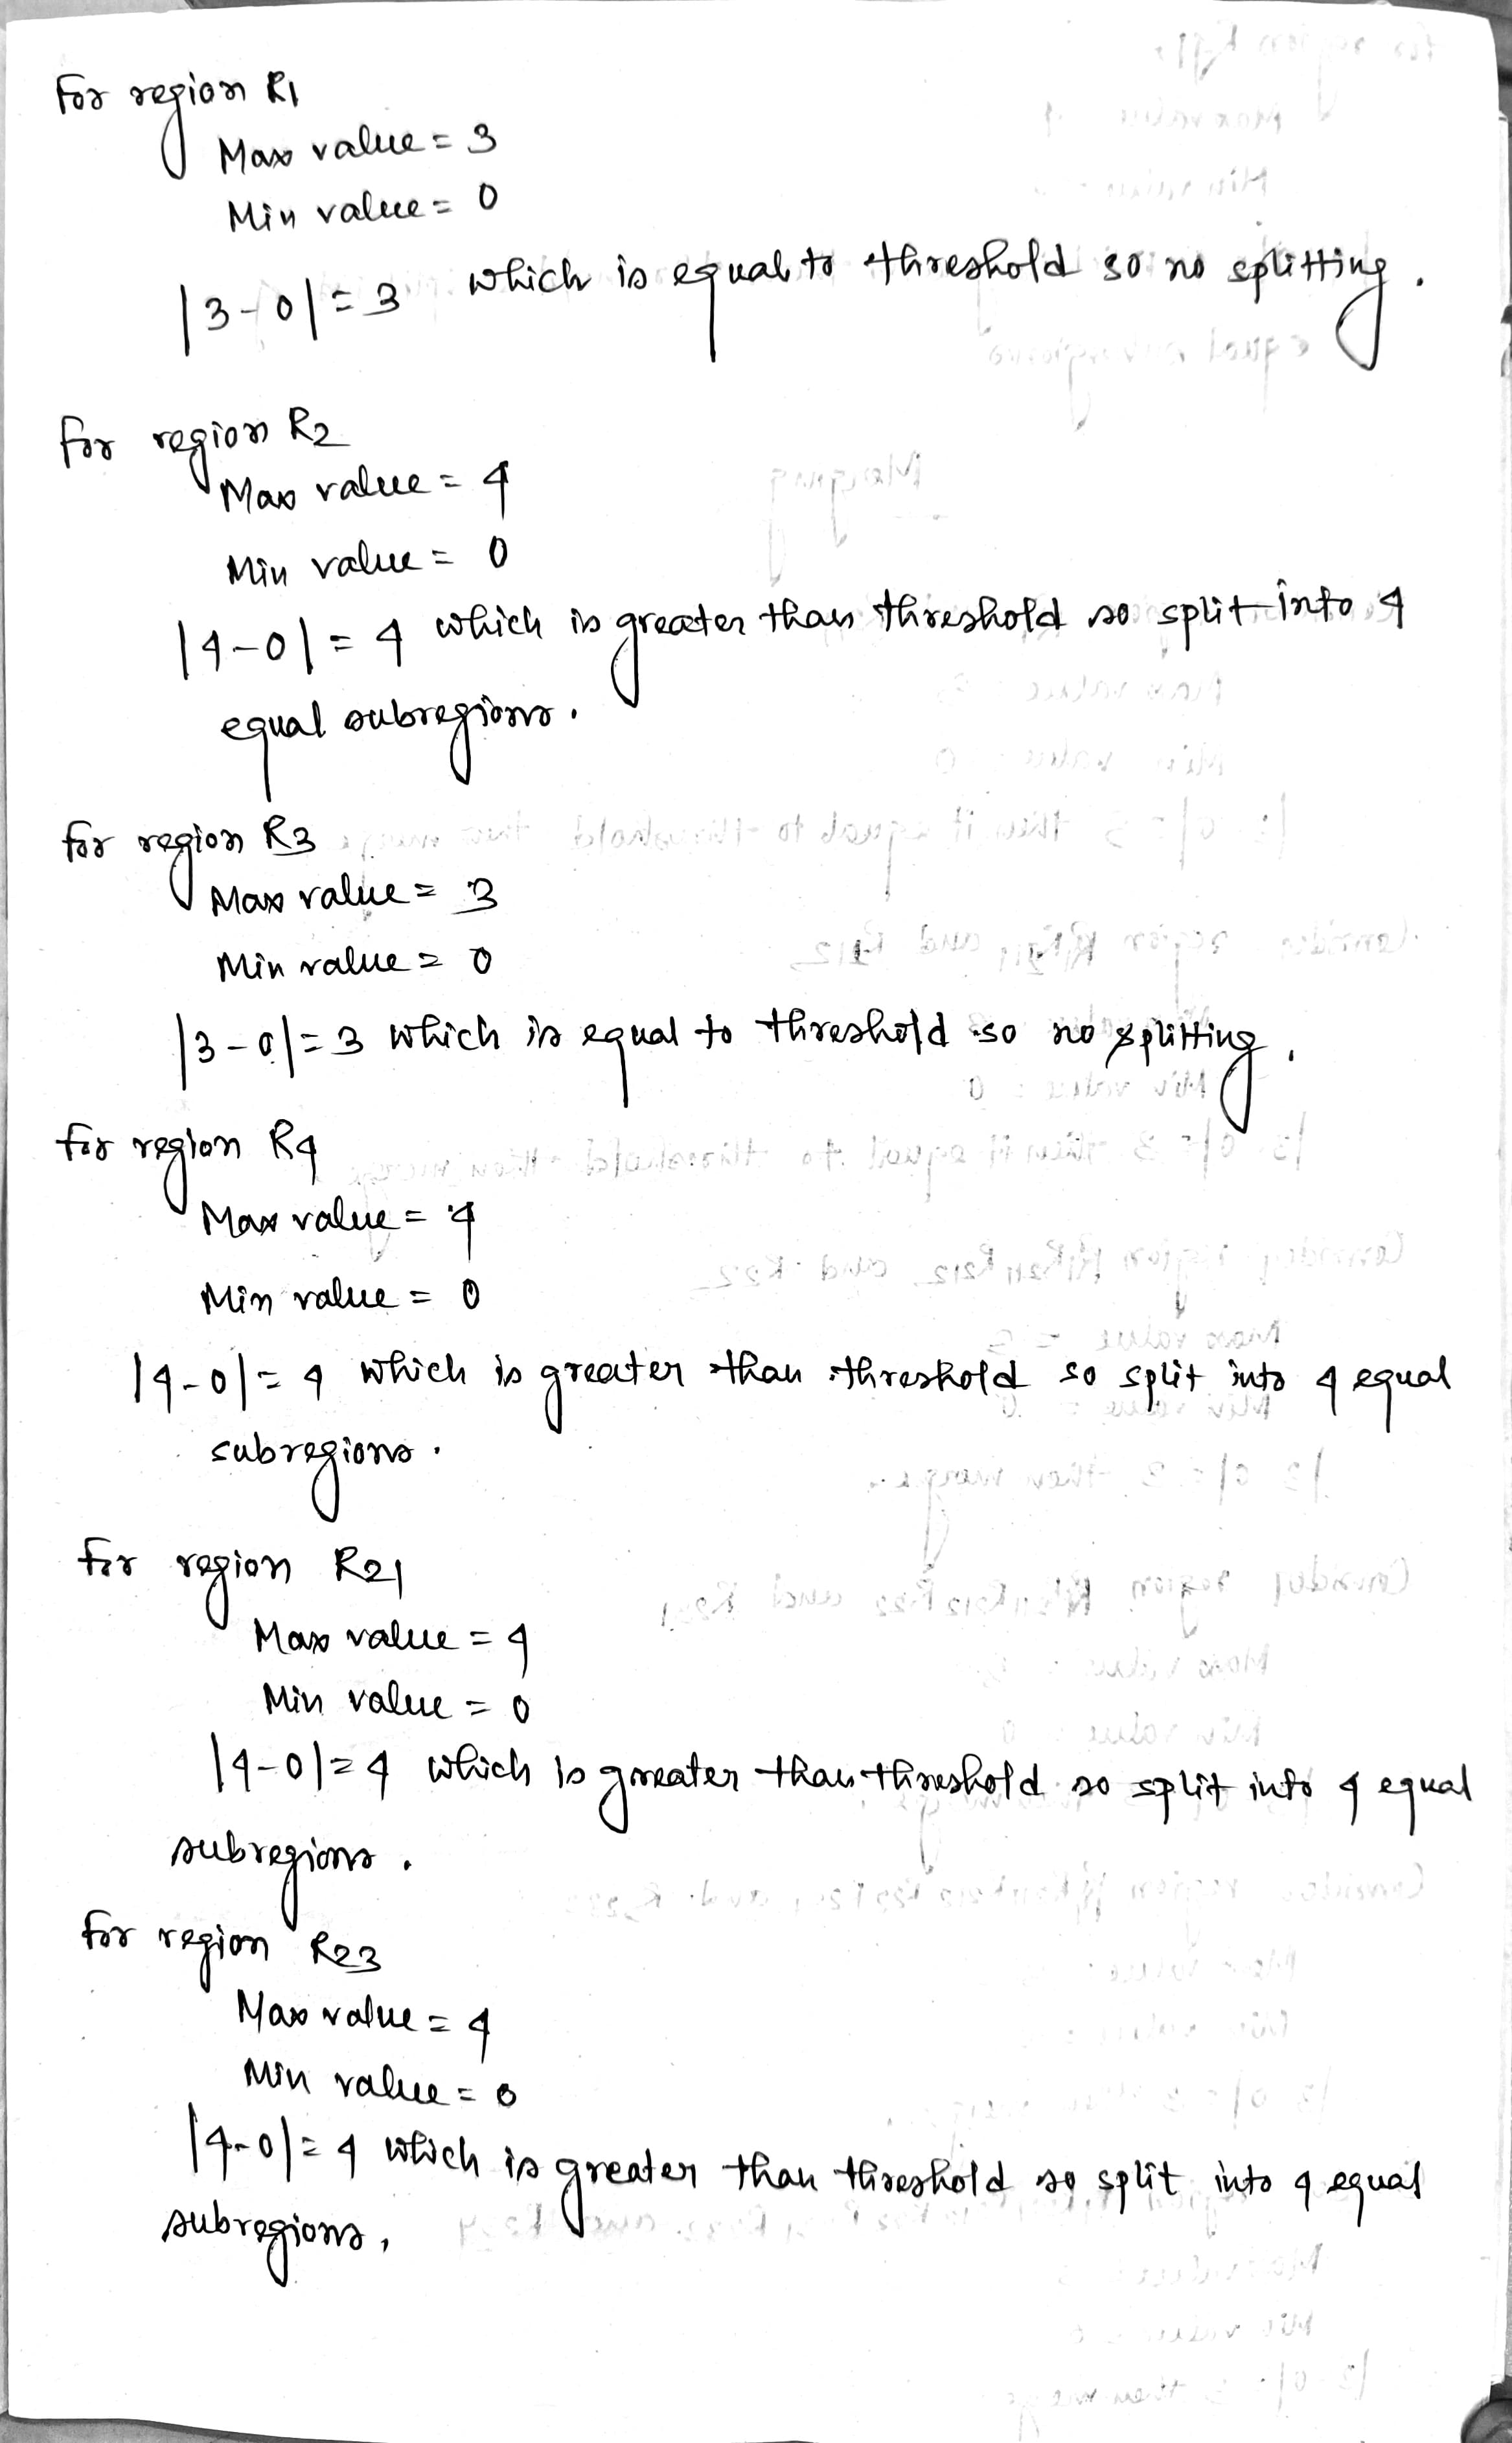 For region R1
Max value = 3
Min value = 0
|3-0|= 3 which is equal to threshold so no splitting.
for region R2
Max value = 4
Min value = 0
|4-0| = 4 which is greater than threshold so split into 4
equal subregions.
for region R3
Max value = 3
Min value = 0
|3-0|= 3 which is equal to threshold so no splitting.
for region R4
Max value = 4
Min value = 0
|4-0|= 4 which is greater than threshold so split into 4 equal
subregions.
for region R21
Max value = 4
Min value = 0
|4-0|= 4 which is greater than threshold so split into 4 equal
subregions.
for region R23
Max value = 4
Min value = 0
|4-0|= 4 which is greater than threshold so split into 4 equal
subregions.